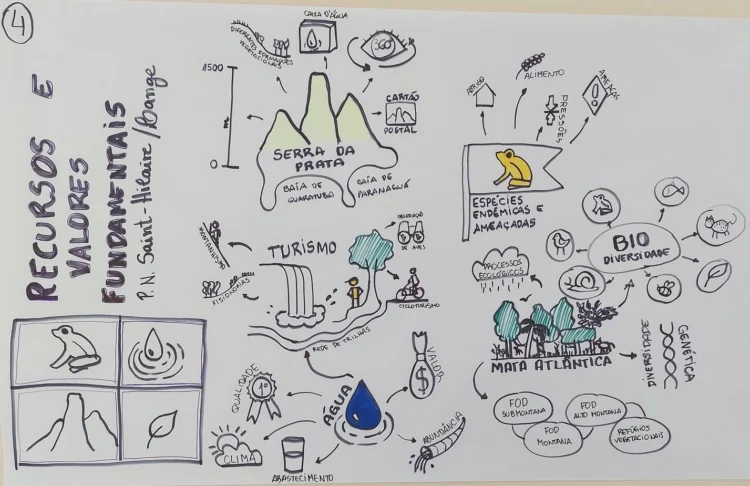 4
RECURSOS E
VALORES
FUNDAMENTAIS
P.N. Saint-Hilaire/Lange
CAIXA D'ÁGUA
DIFERENTES FORMAÇÕES
VEGETACIONAIS
360°
1500
m
0
CARTÃO
POSTAL
SERRA DA
PRATA
BAÍA DE
GUARATUBA
BAÍA DE
PARANAGUÁ
ABRIGO
ALIMENTO
PRESSÕES
AMEAÇAS
!
ESPÉCIES
ENDÊMICAS E
AMEAÇADAS
TURISMO
MONTANHISMO
FISIONOMIAS
OBSERVAÇÃO
DE AVES
CICLOTURISMO
REDE DE TRILHAS
PROCESSOS
ECOLÓGICOS
BIO
DIVERSIDADE
MATA ATLÂNTICA
DIVERSIDADE
GENÉTICA
FOD
SUBMONTANA
FOD
MONTANA
FOD
ALTO MONTANA
REFÚGIOS
VEGETACIONAIS
ÁGUA
QUALIDADE
1º
CLIMA
ABASTECIMENTO
VALOR
$
ABUNDÂNCIA